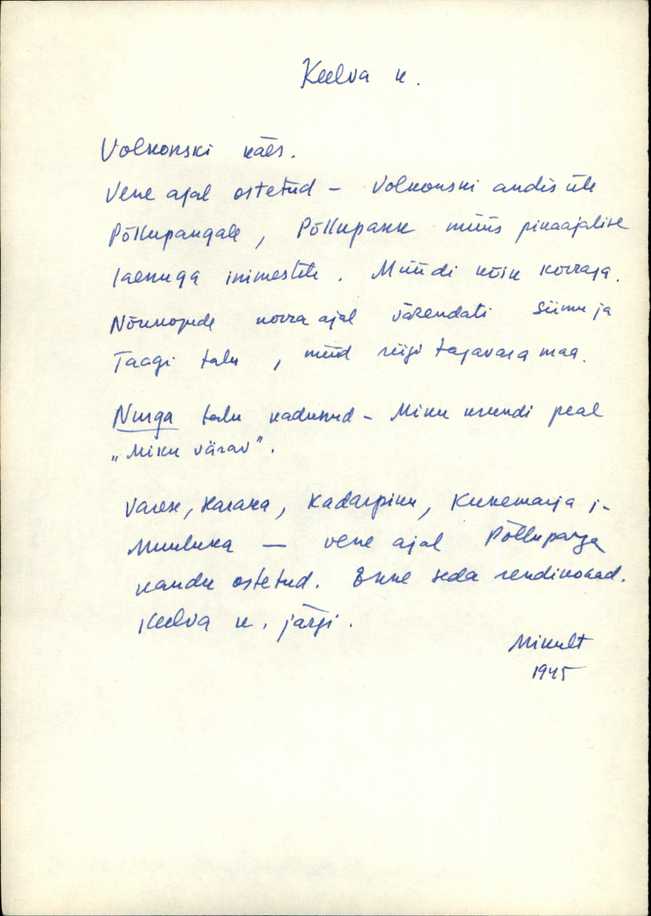 Keelva k.
Volkonski käes.
Vene ajal ostetud – Volkonski andis üle
Põllupangale, Põllupank müüs pikaajalise
laenuga inimestele. Müüdi kõik korraga.
Nõukogude korra ajal vähendati Siimu ja
Taagi talu, nüüd riigi tagavara maa.
Nurga talu kadunud – Miku krundi peal
„Miku värav".
Varese, Karaka, Kadarpiku, Kukemarja j-
Muuluka — vene ajal Põllupanga
kaudu ostetud. Enne seda rendikohad.
Keelva k. järgi.
Mikult
1945